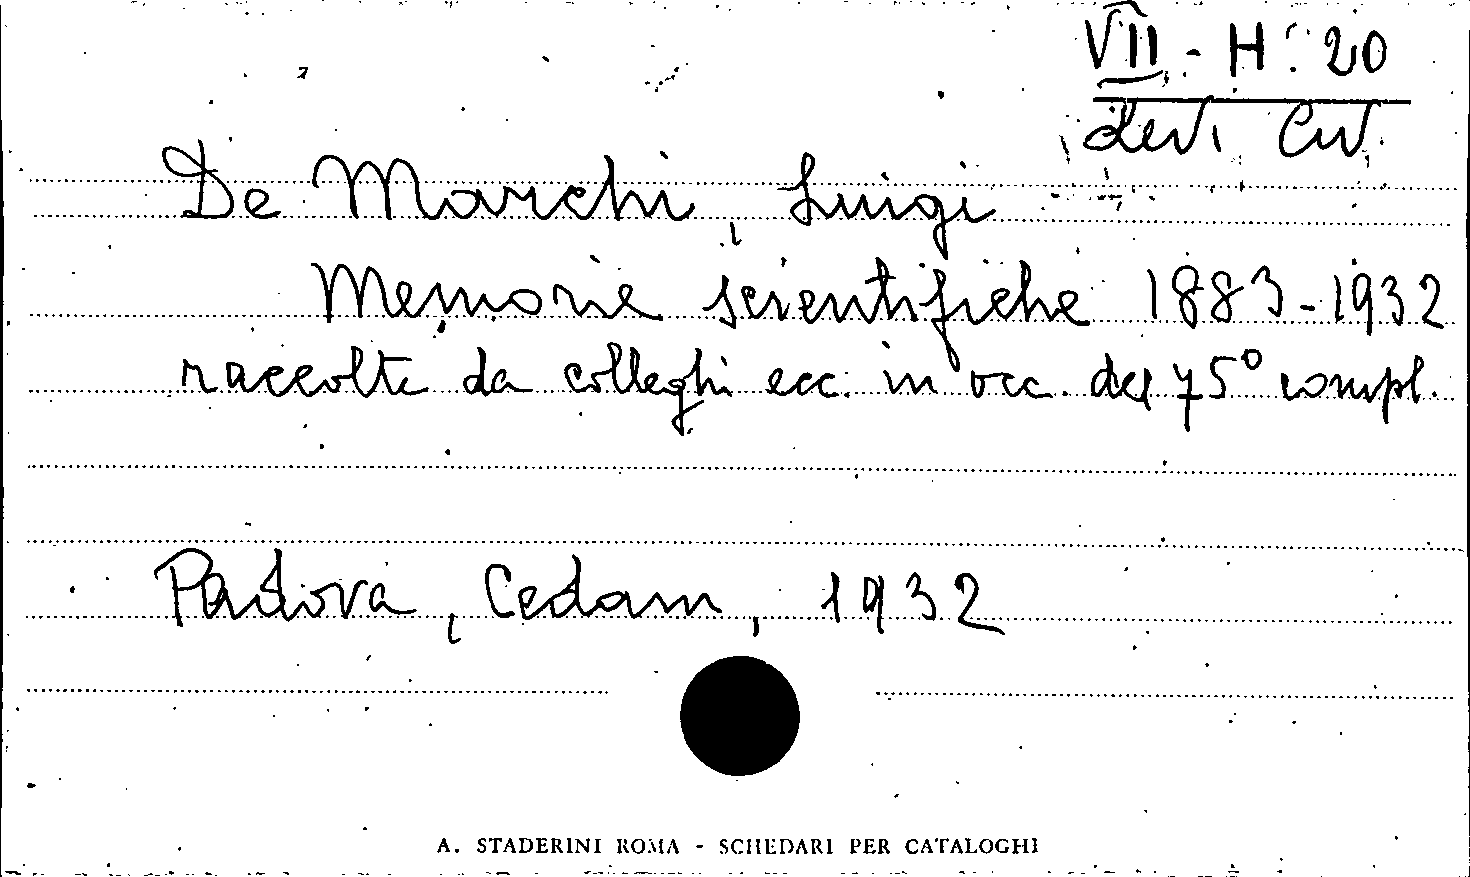 VII - H. 20
Levi Civ.
De Marchi, Luigi
Memorie scientifiche 1883-1932
raccolte da colleghi ecc. in occ. del 75° compl.
Padova, Cedam, 1932
A. STADERINI ROMA - SCHEDARI PER CATALOGHI